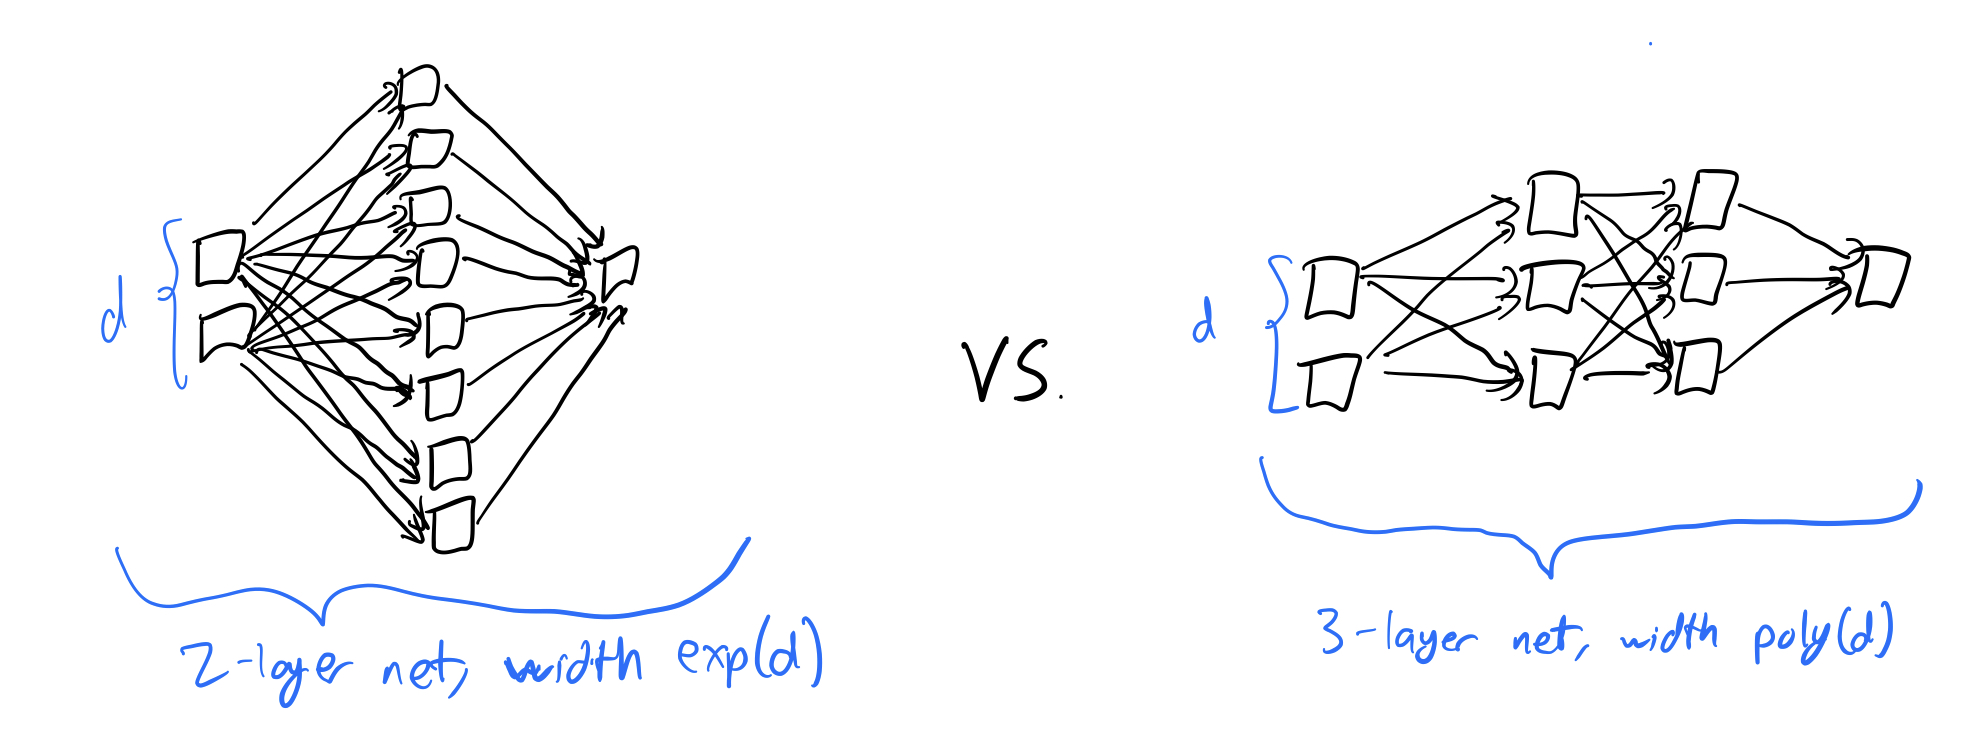 d
vs.
d
2-layer net, width exp(d)
3-layer net, width poly(d)